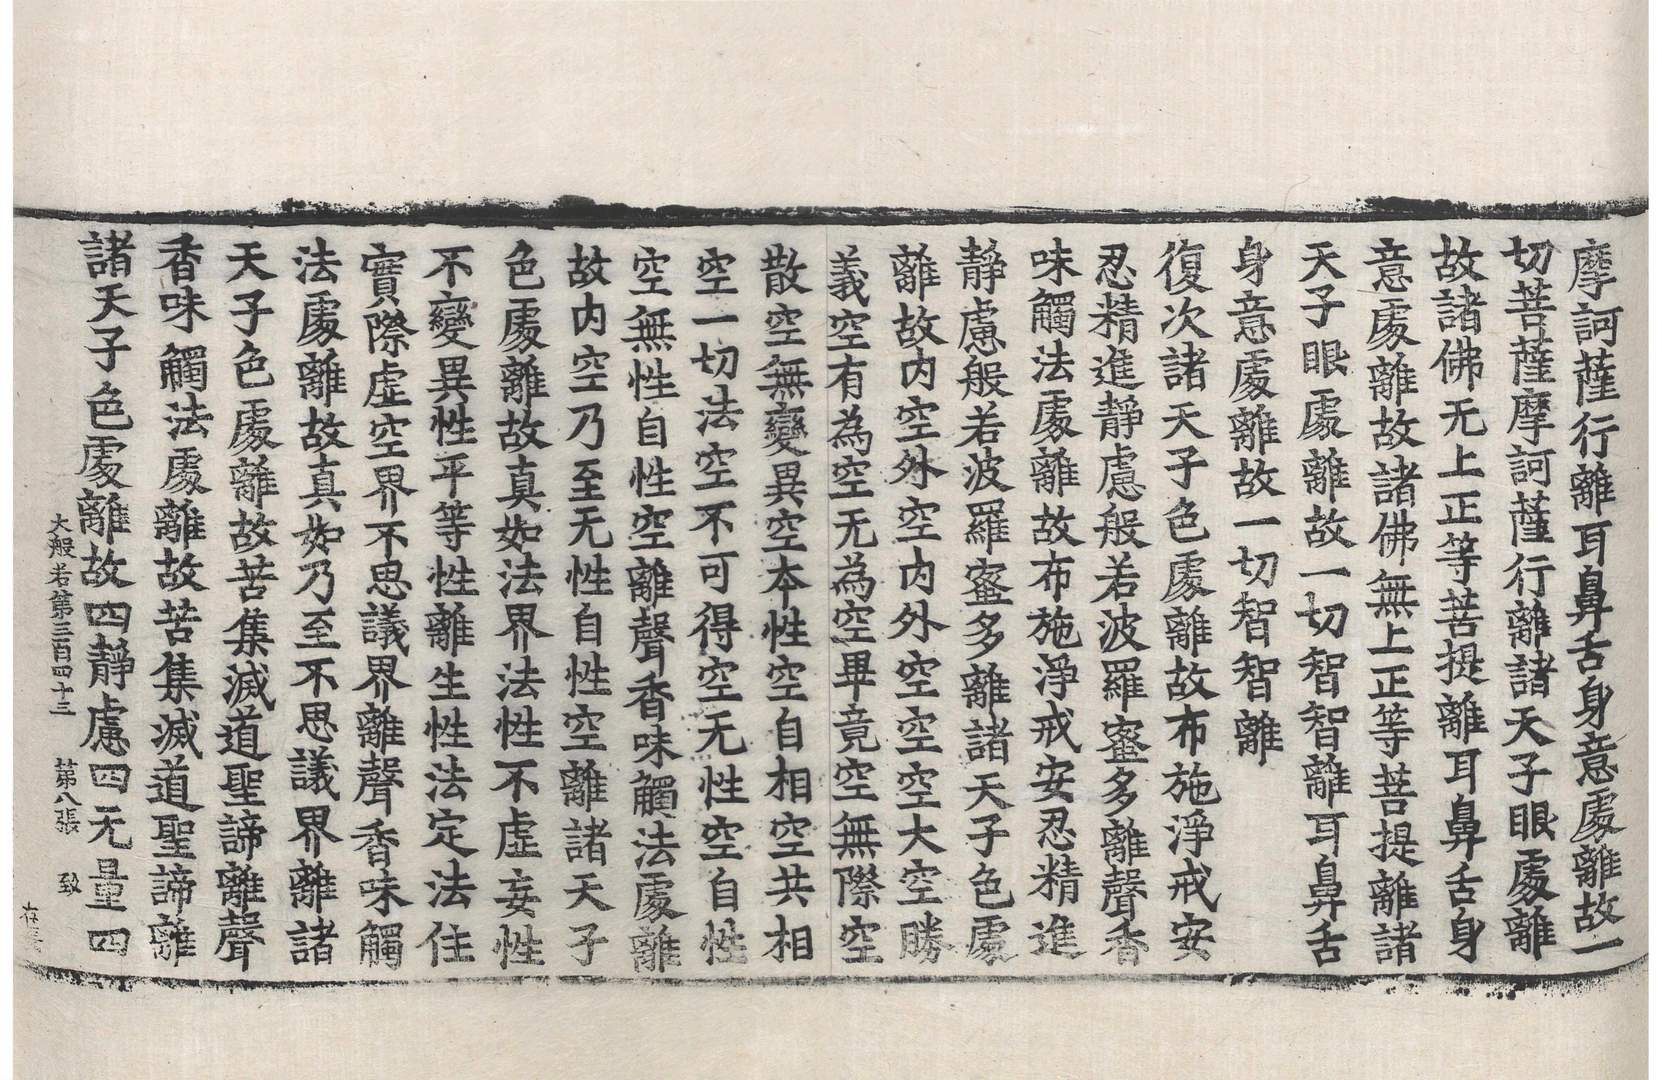 摩訶薩行離耳鼻舌身意處離故一
切菩薩摩訶薩行離諸天子眼處離
故諸佛无上正等菩提離耳鼻舌身
意處離故諸佛無上正等菩提離諸
天子眼處離故一切智智離耳鼻舌
身意處離故一切智智離
復次諸天子色處離故布施淨戒安
忍精進靜慮般若波羅蜜多離聲香
味觸法處離故布施淨戒安忍精進
靜慮般若波羅蜜多離諸天子色處
離故内空外空内外空空空大空勝
義空有為空无為空畢竟空無際空
散空無變異空本性空自相空共相
空一切法空不可得空无性空自性
空無性自性空離聲香味觸法處離
故内空乃至无性自性空離諸天子
色處離故真如法界法性不虛妄性
不變異性平等性離生性法定法住
實際虛空界不思議界離聲香味觸
法處離故真如乃至不思議界離諸
天子色處離故苦集滅道聖諦離聲
香味觸法處離故苦集滅道聖諦離
諸天子色處離故四靜慮四无量四
大般若第三百四十三 第八張 致